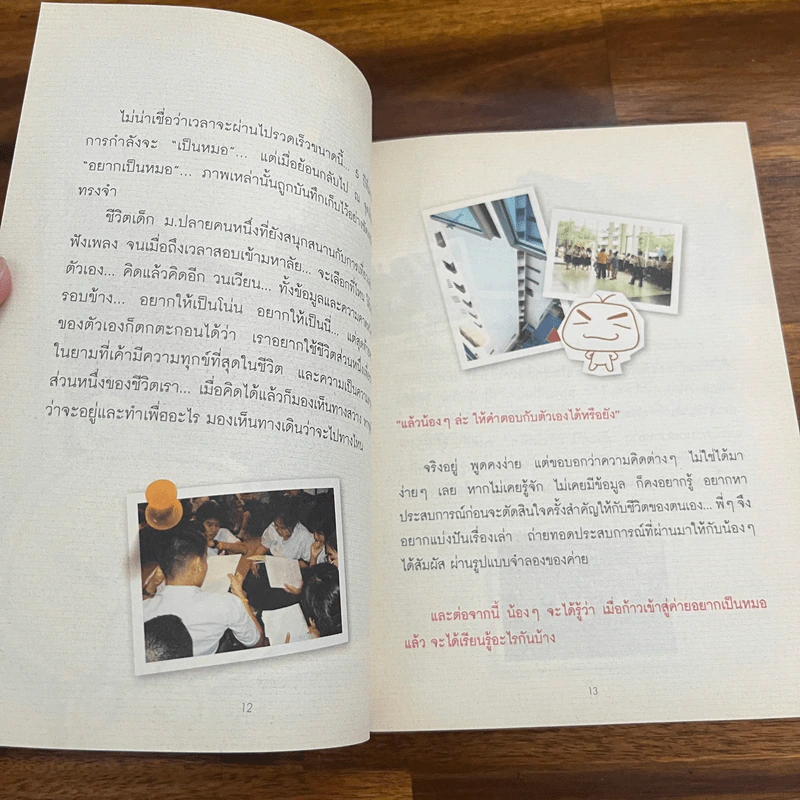 ไม่น่าเชื่อว่าเวลาจะผ่านไปรวดเร็วขนาดนี้... 5
การกำลังจะ "เป็นหมอ"... แต่เมื่อย้อนกลับไป ณ
"อยากเป็นหมอ"... ภาพเหล่านั้นถูกบันทึกเก็บไว้อย่าง
ทรงจำ
ชีวิตเด็ก ม.ปลายคนหนึ่งที่ยังสนุกสนานกับการ
ฟังเพลง จนเมื่อถึงเวลาสอบเข้ามหาลัย... จะเลือกที่ไหน
ตัวเอง... คิดแล้วคิดอีก วนเวียน... ทั้งข้อมูลและความ
รอบข้าง... อยากให้เป็นโน่น อยากให้เป็นนี่... แต่สุดท้าย
ของตัวเองก็ตกตะกอนได้ว่า เราอยากใช้ชีวิตส่วนหนึ่ง
ในยามที่เค้ามีความทุกข์ที่สุดในชีวิต และความเป็นความ
ส่วนหนึ่งของชีวิตเรา... เมื่อคิดได้แล้วก็มองเห็นทางสว่าง
ว่าจะอยู่และทำเพื่ออะไร มองเห็นทางเดินว่าจะไปทางไหน
12
"แล้วน้องๆ ล่ะ ให้คำตอบกับตัวเองได้หรือยัง"
จริงอยู่ พูดคงง่าย แต่ขอบอกว่าความคิดต่างๆ ไม่ใช่ได้มา
ง่ายๆ เลย หากไม่เคยรู้จัก ไม่เคยมีข้อมูล ก็คงอยากรู้ อยากหา
ประสบการณ์ก่อนจะตัดสินใจครั้งสำคัญให้กับชีวิตของตนเอง... พี่ๆ จึง
อยากแบ่งปันเรื่องเล่า ถ่ายทอดประสบการณ์ที่ผ่านมาให้กับน้องๆ
ได้สัมผัส ผ่านรูปแบบจำลองของค่าย
และต่อจากนี้ น้องๆ จะได้รู้ว่า เมื่อก้าวเข้าสู่ค่ายอยากเป็นหมอ
แล้ว จะได้เรียนรู้อะไรกันบ้าง
13